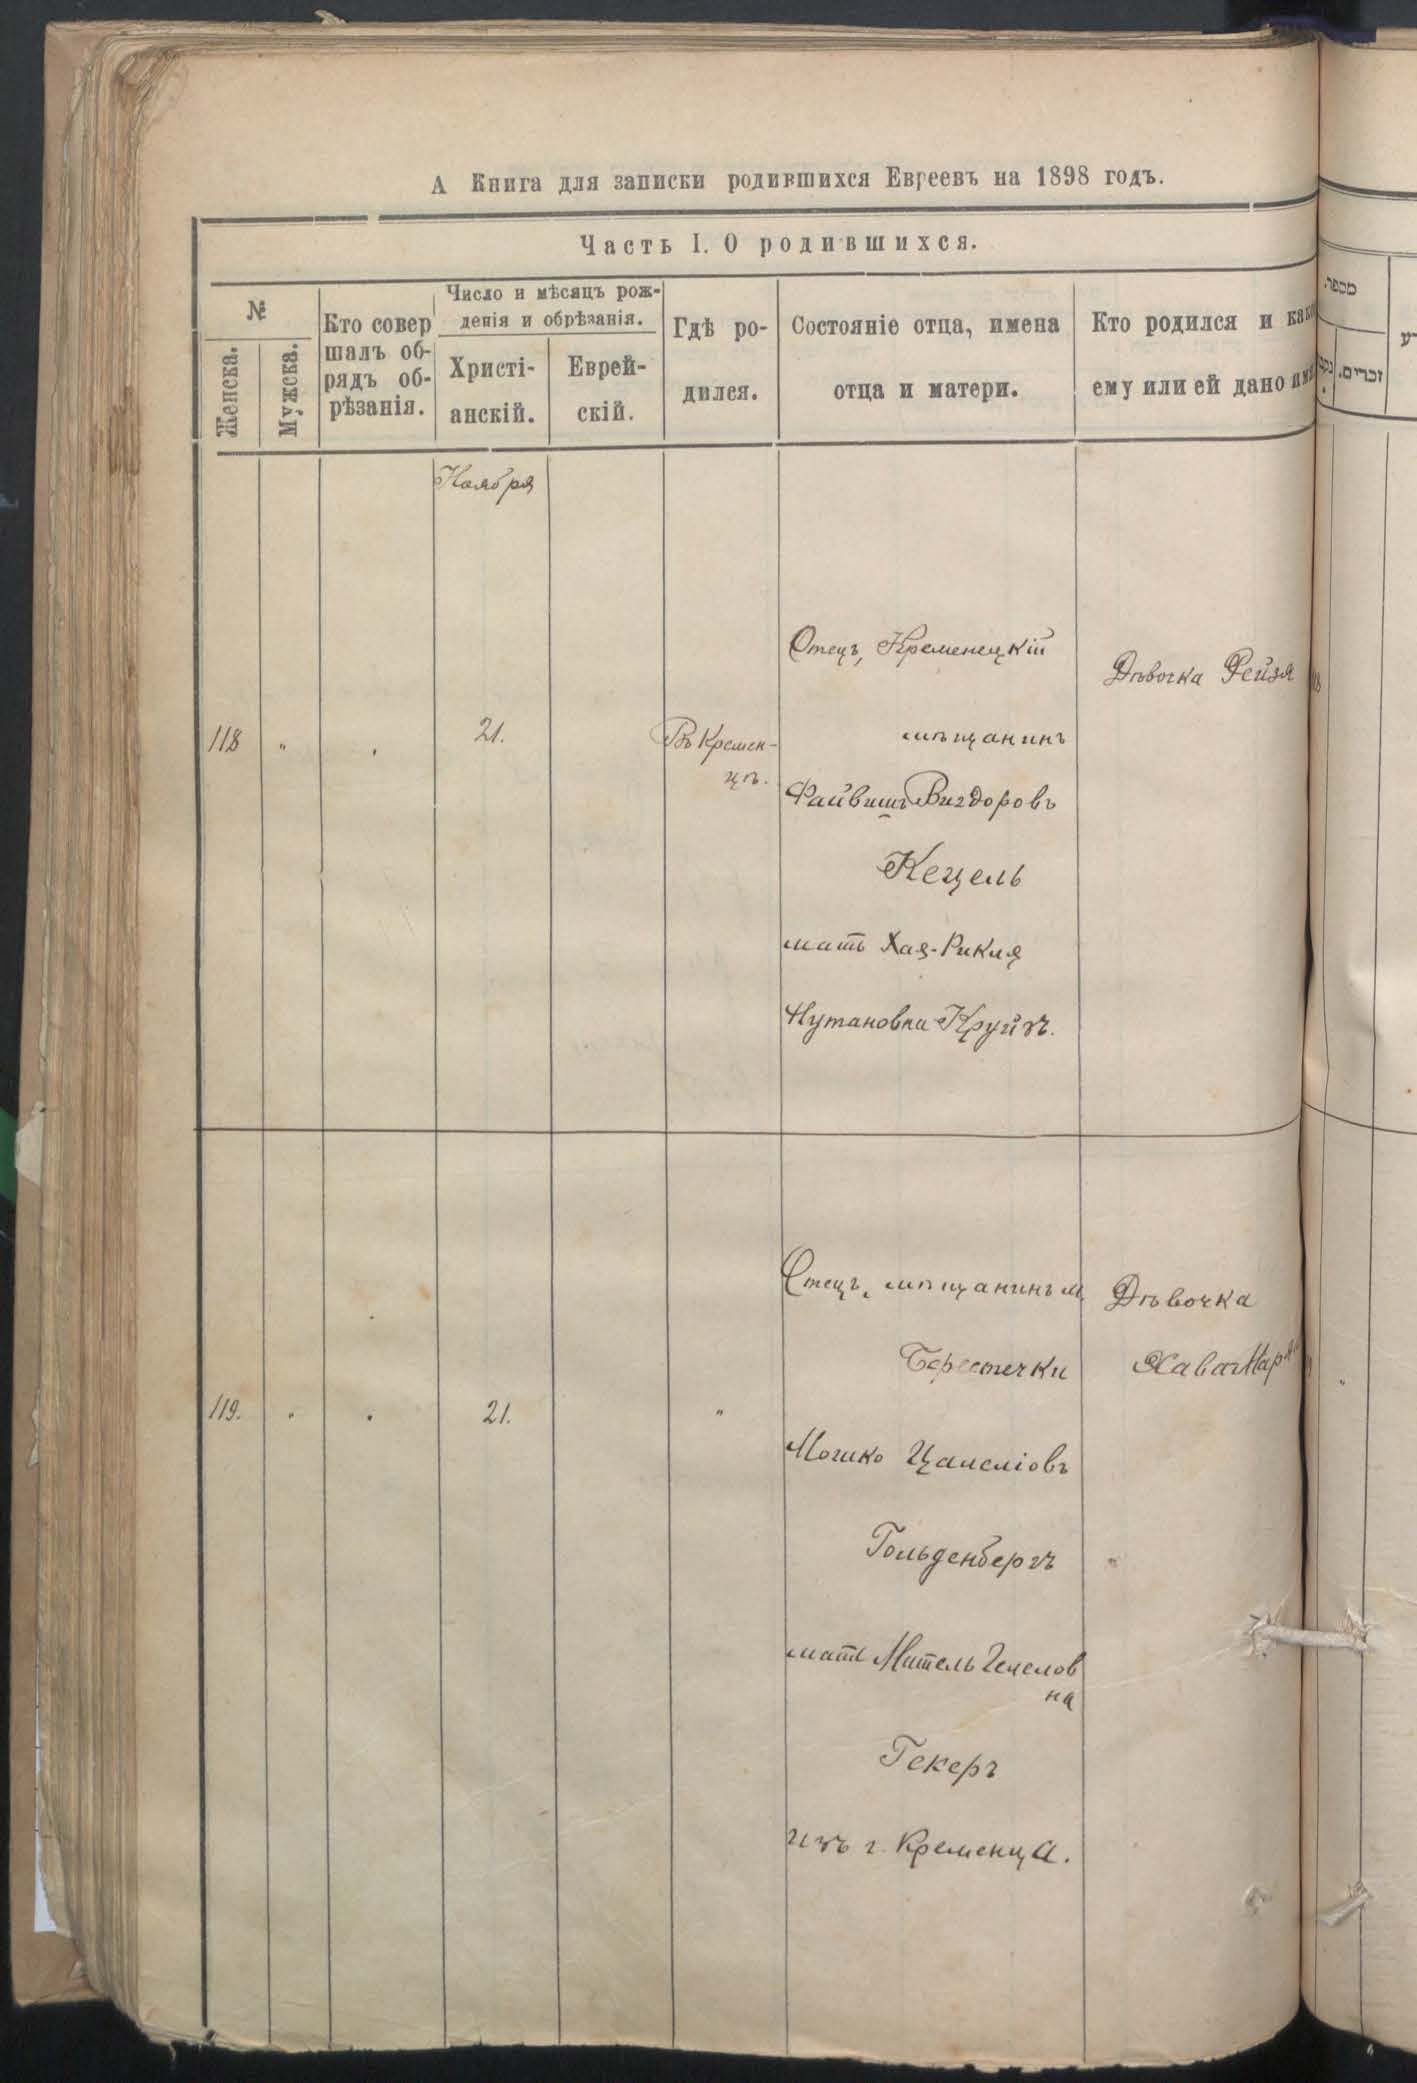 А Книга для записки родившихся Евреевъ на 1898 годъ.
Часть I. О родившихся.
№
Женска.
Мужска.
Кто совер
шалъ об-
рядъ об-
рѣзанія.
Число и мѣсяцъ рож-
денія и обрѣзанія.
Христі-
анскій.
Еврей-
скій.
Гдѣ ро-
дился.
Состояніе отца, имена
отца и матери.
Кто родился и
ему или ей дано
מספר.
זכרים.
Ноября
118
"
21.
Въ Кремен-
цѣ.
Отецъ, Кременецкій
мѣщанинъ
Файвишъ Вигдоровъ
Кецель
мать Хая-Рикля
Нутановна Круйзъ.
Дѣвочка Рейзя
119.
"
21.
"
Отецъ, мѣщанинъ м.
Берестечки
Мошко Цалеліовъ
Гольденбергъ
мать Мател​ь
на
Гекеръ
изъ г. Кременца.
Дѣвочка
Хава
"